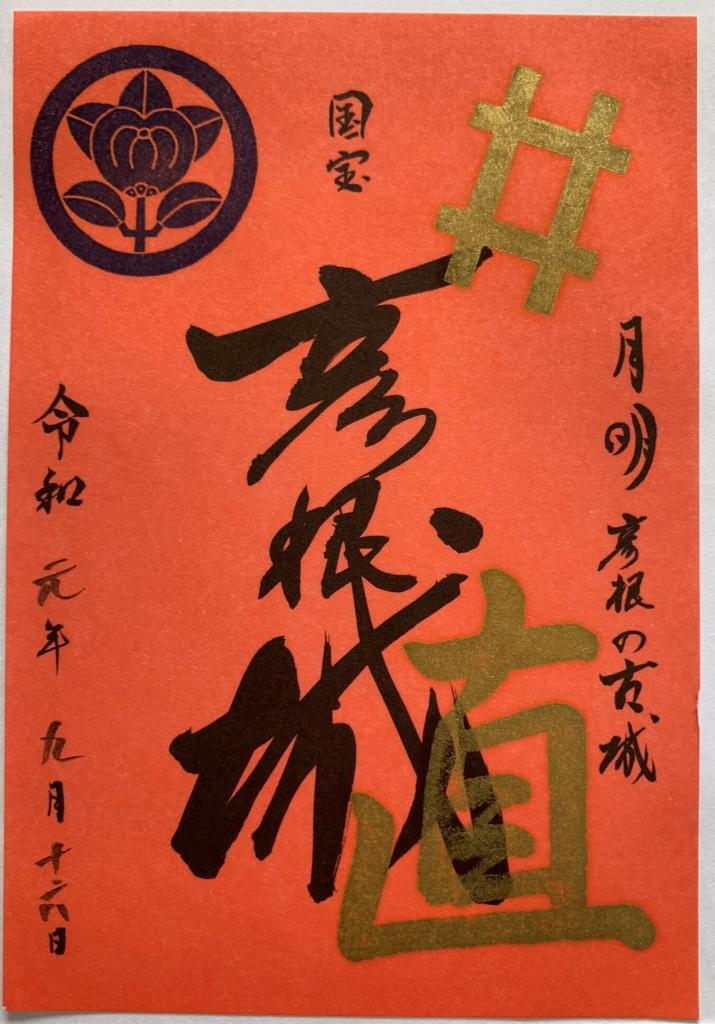 井
月明 彦根の古城
国宝
彦根城
直
令和 元年 九月 十六日